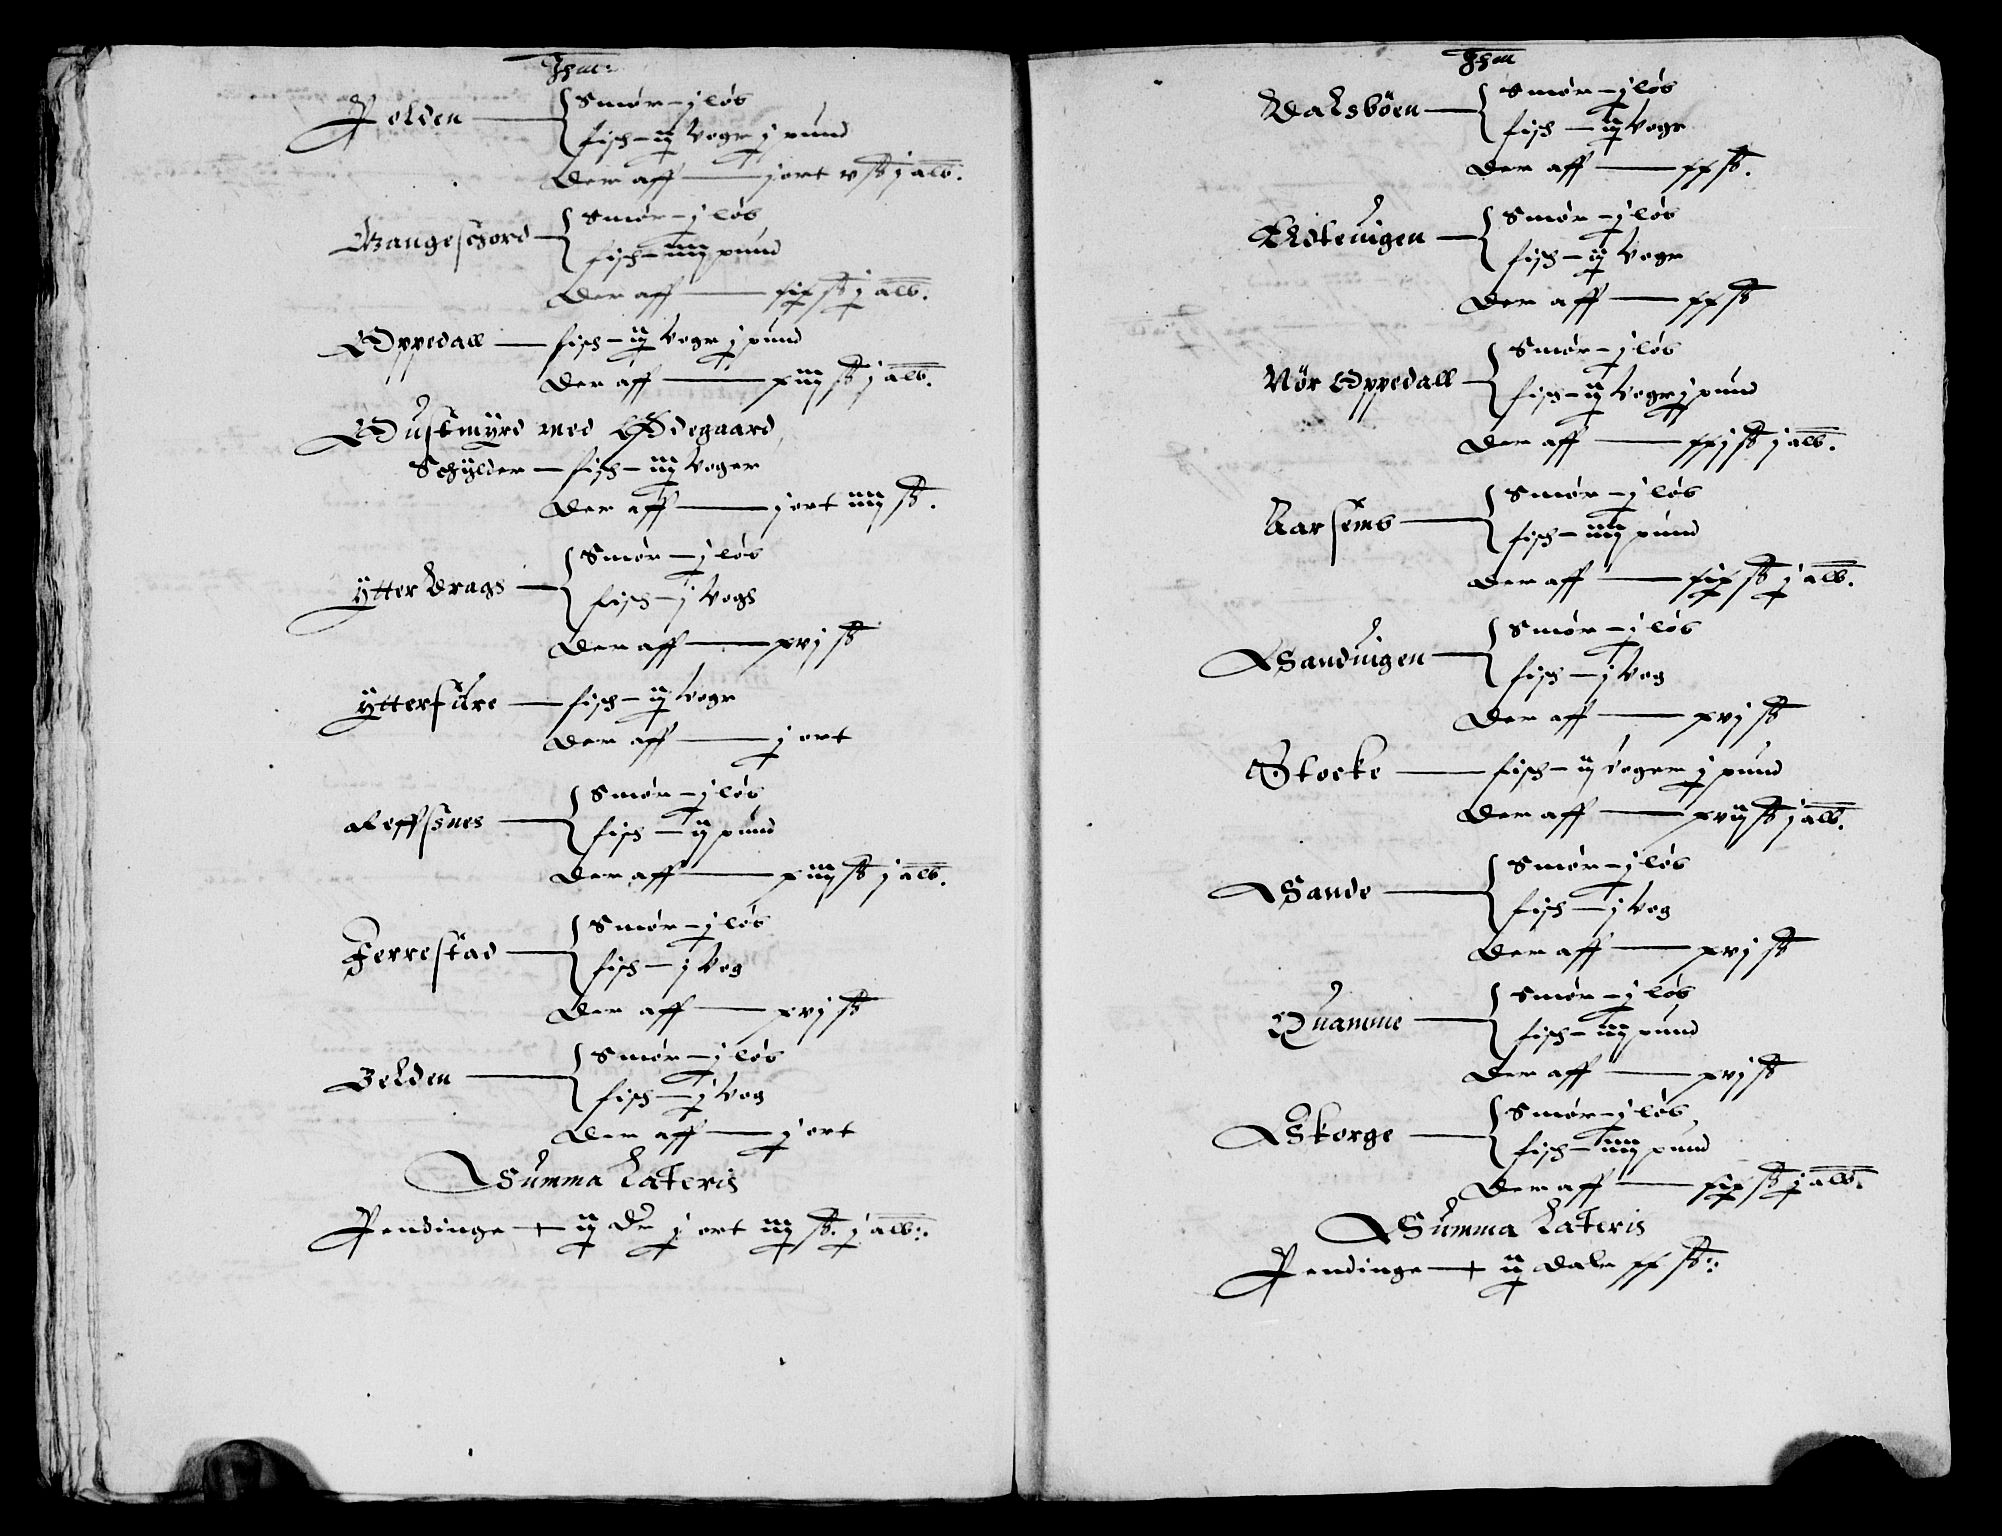 Ihm:
Holden — Smør — j løb
fisch — ij voger j pund
Der aff — j ort v ß j alb.
Mangeschord — Smør — j løb
fisch — iiij pund
Der aff — xix ß j alb.
Oppedall — fisch — ij voger j pund
Der aff — xiiij ß j alb.
Gustmyrd med Ødegaard
Schylder — fisch — iij voger
Der aff — j ort iiij ß.
Ytter drags — Smør — j løb
fisch — j vogs
Der aff — xvj ß
Ytter sure — fisch — ij voger
Der aff — j ort
aleffsnes — Smør — j løb
fisch — ij pund
Der aff — xiiij ß j alb.
Ferrestad — Smør — j løb
fisch — j vog
Der aff — xvj ß
Belden — Smør — j løb
fisch — j vog
Der aff — j ort
Summa Lateris
Pendinge — ij dr j ort iiij ß. j alb:
Ihm
Dalsbøen — Smør — j løb
fisch — ij voger
Der aff — xx ß.
Leditevigen — Smør — j løb
fisch — ij voger
Der aff — xx ß
Nør Oppedall — Smør — j løb
fisch — ij voger j pund
Der aff — xxj ß j alb.
Aarsems — Smør — j løb
fisch — iiij pund
Der aff — xix ß j alb.
Sanduigen — Smør — j løb
fisch — j vog
Der aff — xvj ß
Stocke — fisch — ij voger j pund
Der aff — xvij ß j alb.
Sande — Smør — j løb
fisch — j vog
Der aff — xvj ß
Quamme — Smør — j løb
fisch — iij pund
Der aff — xvj ß
Skorge — Smør — j løb
fisch — iiij pund
Der aff — xix ß j alb.
Summa Lateris
Pendinge — ij daler xx ß: